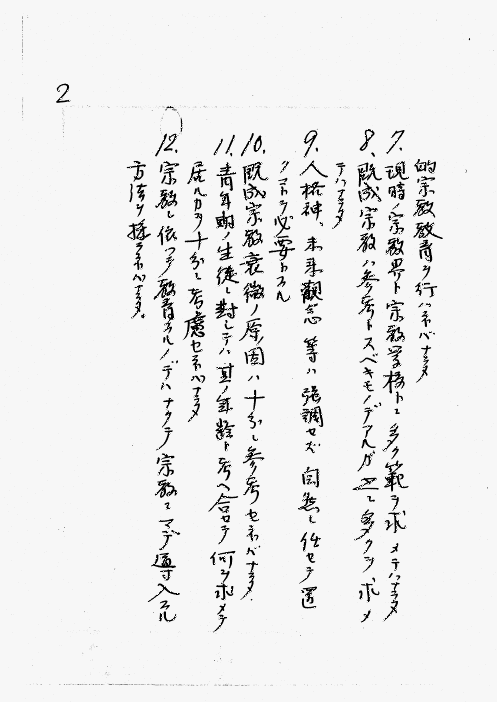 2
的宗教教育ヲ行ハネバナラヌ
7. 現時ノ宗教界ト宗教学校トニ多ク範ヲ求メテハナラヌ
8. 既成宗教ハ参考トスベキモノデアルガ之ニ多クヲ求メ
テハナラヌ
9. 人格神、未来観念等ハ強調セズ自然ニ任セテ置
クコトヲ必要トスル
10. 既成宗教衰微ノ原因ハ十分ニ参考セネバナラヌ.
11. 青年期ノ生徒ニ対シテハ其ノ年齢ト考ヘ合セテ何ヲ求メテ
居ルカヲ十分ニ考慮セネバナラヌ
12. 宗教ニ依ッテ教育スルノデハナクテ宗教ニマデ導入スル
方法ヲ採ラネバナラヌ.